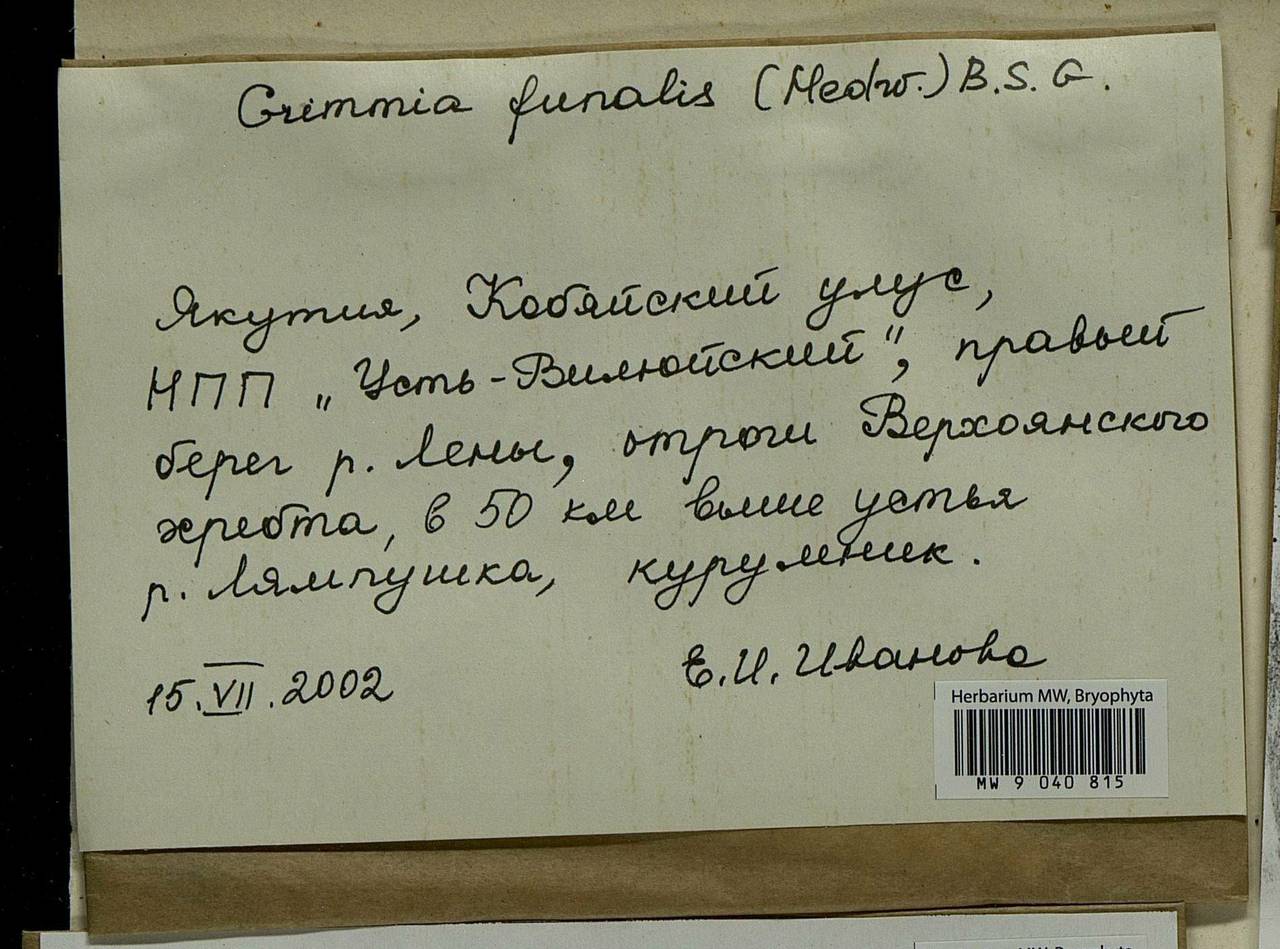 Grimmia funalis (Hedw.) B.S.G.
Якутия, Кобяйский улус,
НПП „Усть-Вилюйский", правый
берег р. Лены, отроги Верхоянского
хребта, в 50 км выше устья
р. Лямпушка, курумник.
15.VII.2002
Е.И. Иванова
Herbarium MW, Bryophyta
MW 9 040 815